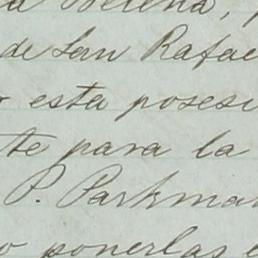 a Helena,
de San Rafae
esta posesi
te para la
P. Parkma
o ponerlas e